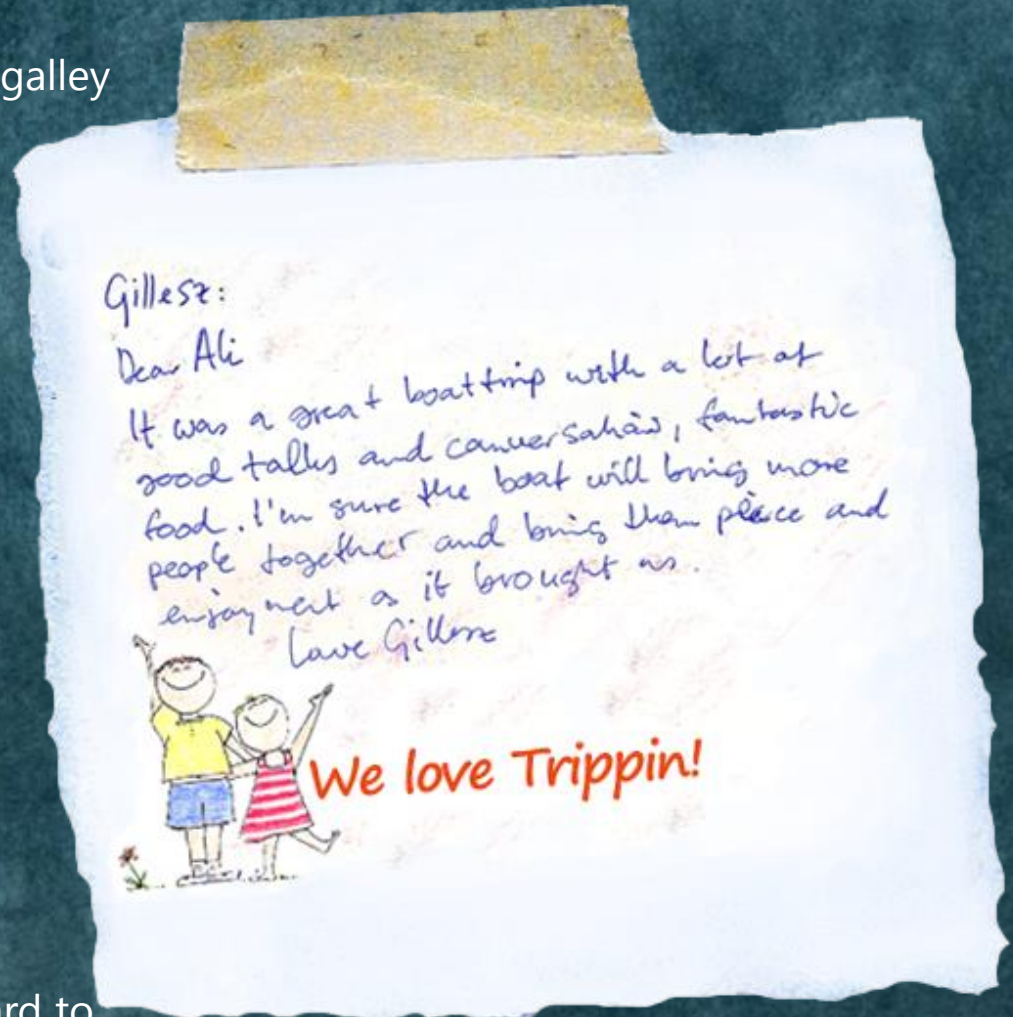 galley
Gillesz:
Dear Ali
It was a great boattrip with a lot of
good talks and conversation, fantastic
food. I'm sure the boat will bring more
people together and bring them peace and
enjoyment as it brought us.
Love Gillesz
We love Trippin!
ard to